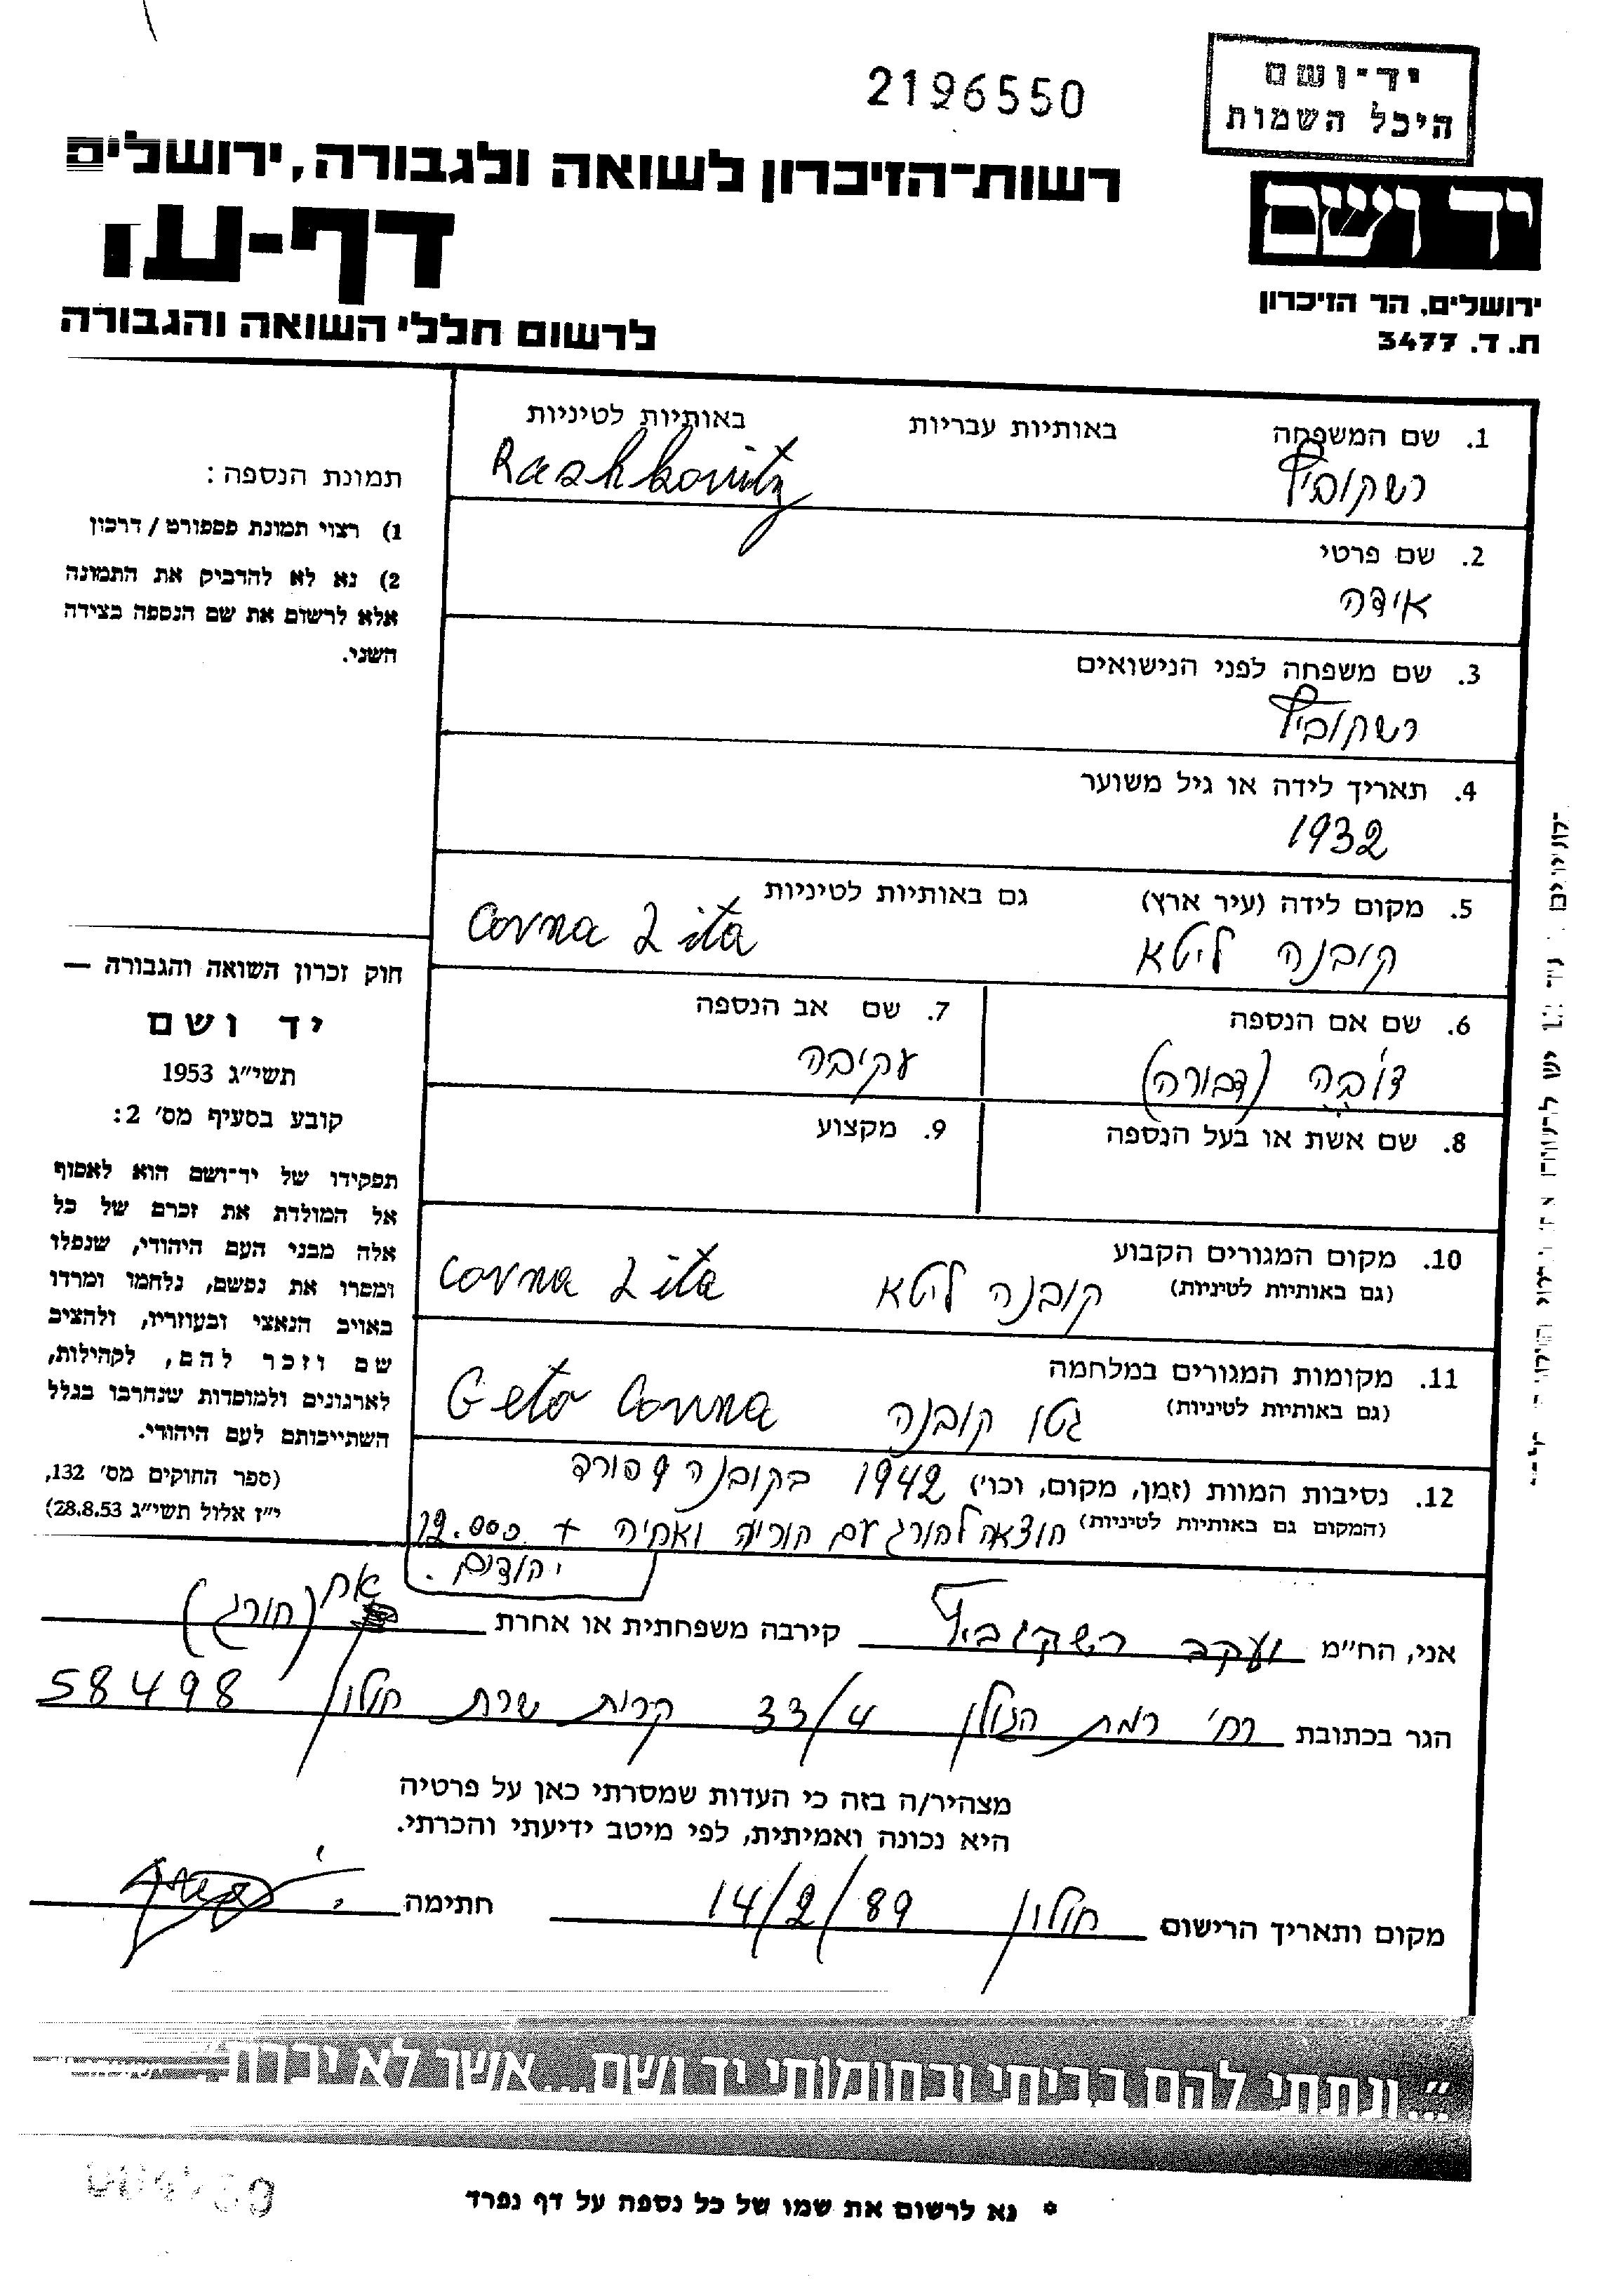 2196550
יד-ושם
היכל השמות
רשות-הזיכרון לשואה ולגבורה, ירושלים
יד ושם
דף-עד
ירושלים, הר הזיכרון
ת. ד. 3477
לרשום חללי השואה והגבורה
תמונת הנספה:
1) רצוי תמונת פספורט / דרכון
2) נא לא להדביק את התמונה
אלא לרשום את שם הנספה בצידה
השני.
חוק זכרון השואה והגבורה —
יד ושם
תשי״ג 1953
קובע בסעיף מס׳ 2:
תפקידו של יד-ושם הוא לאסוף
אל המולדת את זכרם של כל
אלה מבני העם היהודי, שנפלו
ומסרו את נפשם, נלחמו ומרדו
באויב הנאצי ובעוזריו, ולהציב
שם וזכר להם, לקהילות,
לארגונים ולמוסדות שנחרבו בגלל
השתייכותם לעם היהודי.
(ספר החוקים מס׳ 132,
י״ז אלול תשי״ג 28.8.53)
1. שם המשפחה באותיות עבריות באותיות לטיניות
רשקוביץ Rashkovitz
2. שם פרטי
אידה
3. שם משפחה לפני הנישואים
רשקוביץ
4. תאריך לידה או גיל משוער
1932
5. מקום לידה (עיר ארץ) גם באותיות לטיניות
קובנה ליטא Covna Lita
6. שם אם הנספה 7. שם אב הנספה
דובה (דבורה) עקיבה
8. שם אשת או בעל הנספה 9. מקצוע
10. מקום המגורים הקבוע
(גם באותיות לטיניות) קובנה ליטא Covna Lita
11. מקומות המגורים במלחמה
(גם באותיות לטיניות) גטו קובנה Geto Covna
12. נסיבות המוות (זמן, מקום, וכו׳) 1942 בקובנה 9 פורד
(המקום גם באותיות לטיניות) הוצאה להורג עם הוריה ואחיה + 12.000
יהודים.
אני, הח״מ יעקב רשקוביץ קירבה משפחתית או אחרת אח (חורג)
הגר בכתובת רח׳ רמת הגולן 33/4 קרית שרת חולון 58498
מצהיר/ה בזה כי העדות שמסרתי כאן על פרטיה
היא נכונה ואמיתית, לפי מיטב ידיעתי והכרתי.
מקום ותאריך הרישום חולון 14/2/89 חתימה
״...ונתתי להם בביתי ובחומותי יד ושם...אשר לא יכרת.״
* נא לרשום את שמו של כל נספה על דף נפרד